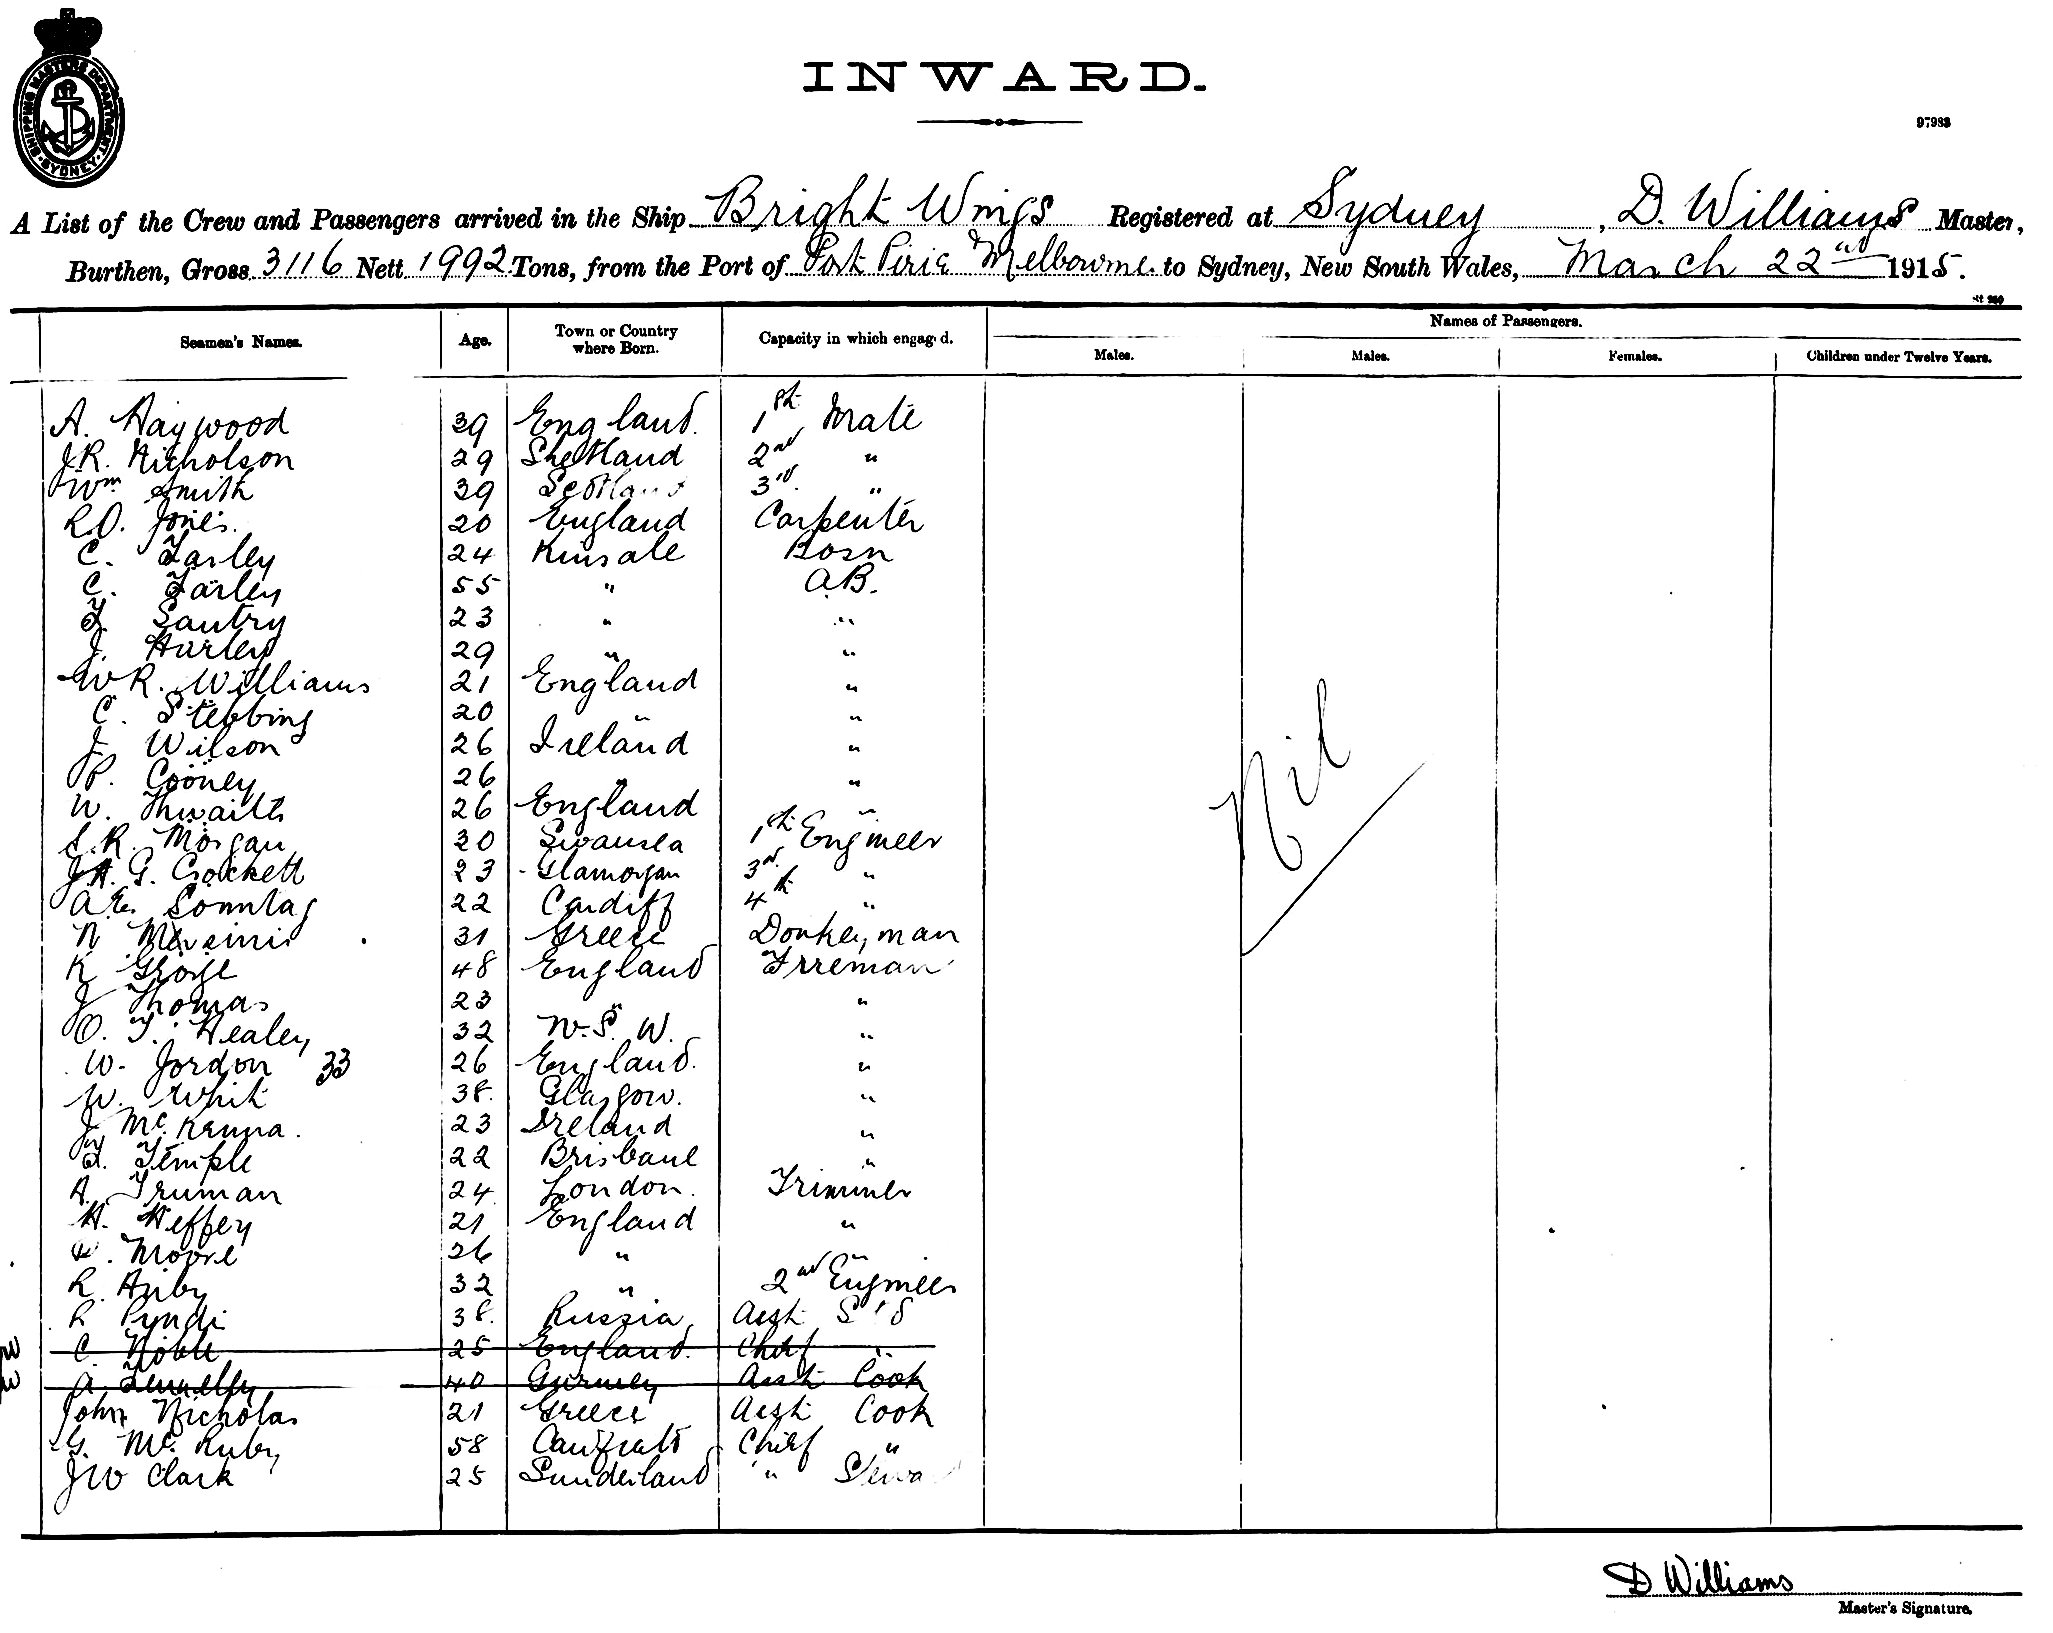 SHIPPING MASTERS DEPARTMENT SYDNEY
INWARD.
97983
A List of the Crew and Passengers arrived in the Ship Bright Wings Registered at Sydney, D. Williams Master,
Burthen, Gross 3116 Nett 1992 Tons, from the Port of Port Pirie Melbourne to Sydney, New South Wales, March 22nd 1915.
Seamen's Names. Age. Town or Country where Born. Capacity in which engag d. Names of Passengers.
Males. Males. Females. Children under Twelve Years.
A. Haywood 39 England. 1st Mate
J.R. Nicholson 29 Shetland 2nd "
Wm Smith 39 Scotland 3rd "
R.O. Jones. 20 England Carpenter
C. Farley 24 Kinsale Bosn
C. Farley 55 " A.B.
F. Santry 23 " "
J. Hurley 29 " "
W R. Williams 21 England "
C. Stebbing 20 " "
J. Wilson 26 Ireland "
P. Cooney 26 " "
W. Thwaits 26 England "
S.R. Morgan 30 Swansea 1st Engineer
J.A. G. Crockett 23 Glamorgan 3rd "
A.E. Sonntag 22 Cardiff 4th "
N 31 Greece Donkeyman
K George 48 England Firreman
J Thomas 23 " "
O. T. Healey 32 N.S.W. "
W. Jordon 33 26 England. "
W. Whit 38. Glasgow. "
J McKenna. 23 Ireland "
F. Temple 22 Brisbane "
A. Truman 24 London. Trimmer
H. Heffey 21 England "
Moore 26 " "
R. 32 " 2nd Engineer
R Pyndi 38. Russia Asst S'd
C. Noble 25 England. Chief "
A. 40 Asst Cook
John Nicholas 21 Greece Asst Cook
G. McRuby 58 Chief "
J W Clark 25 Sunderland " Stewa
Nil
D Williams
Master's Signature.